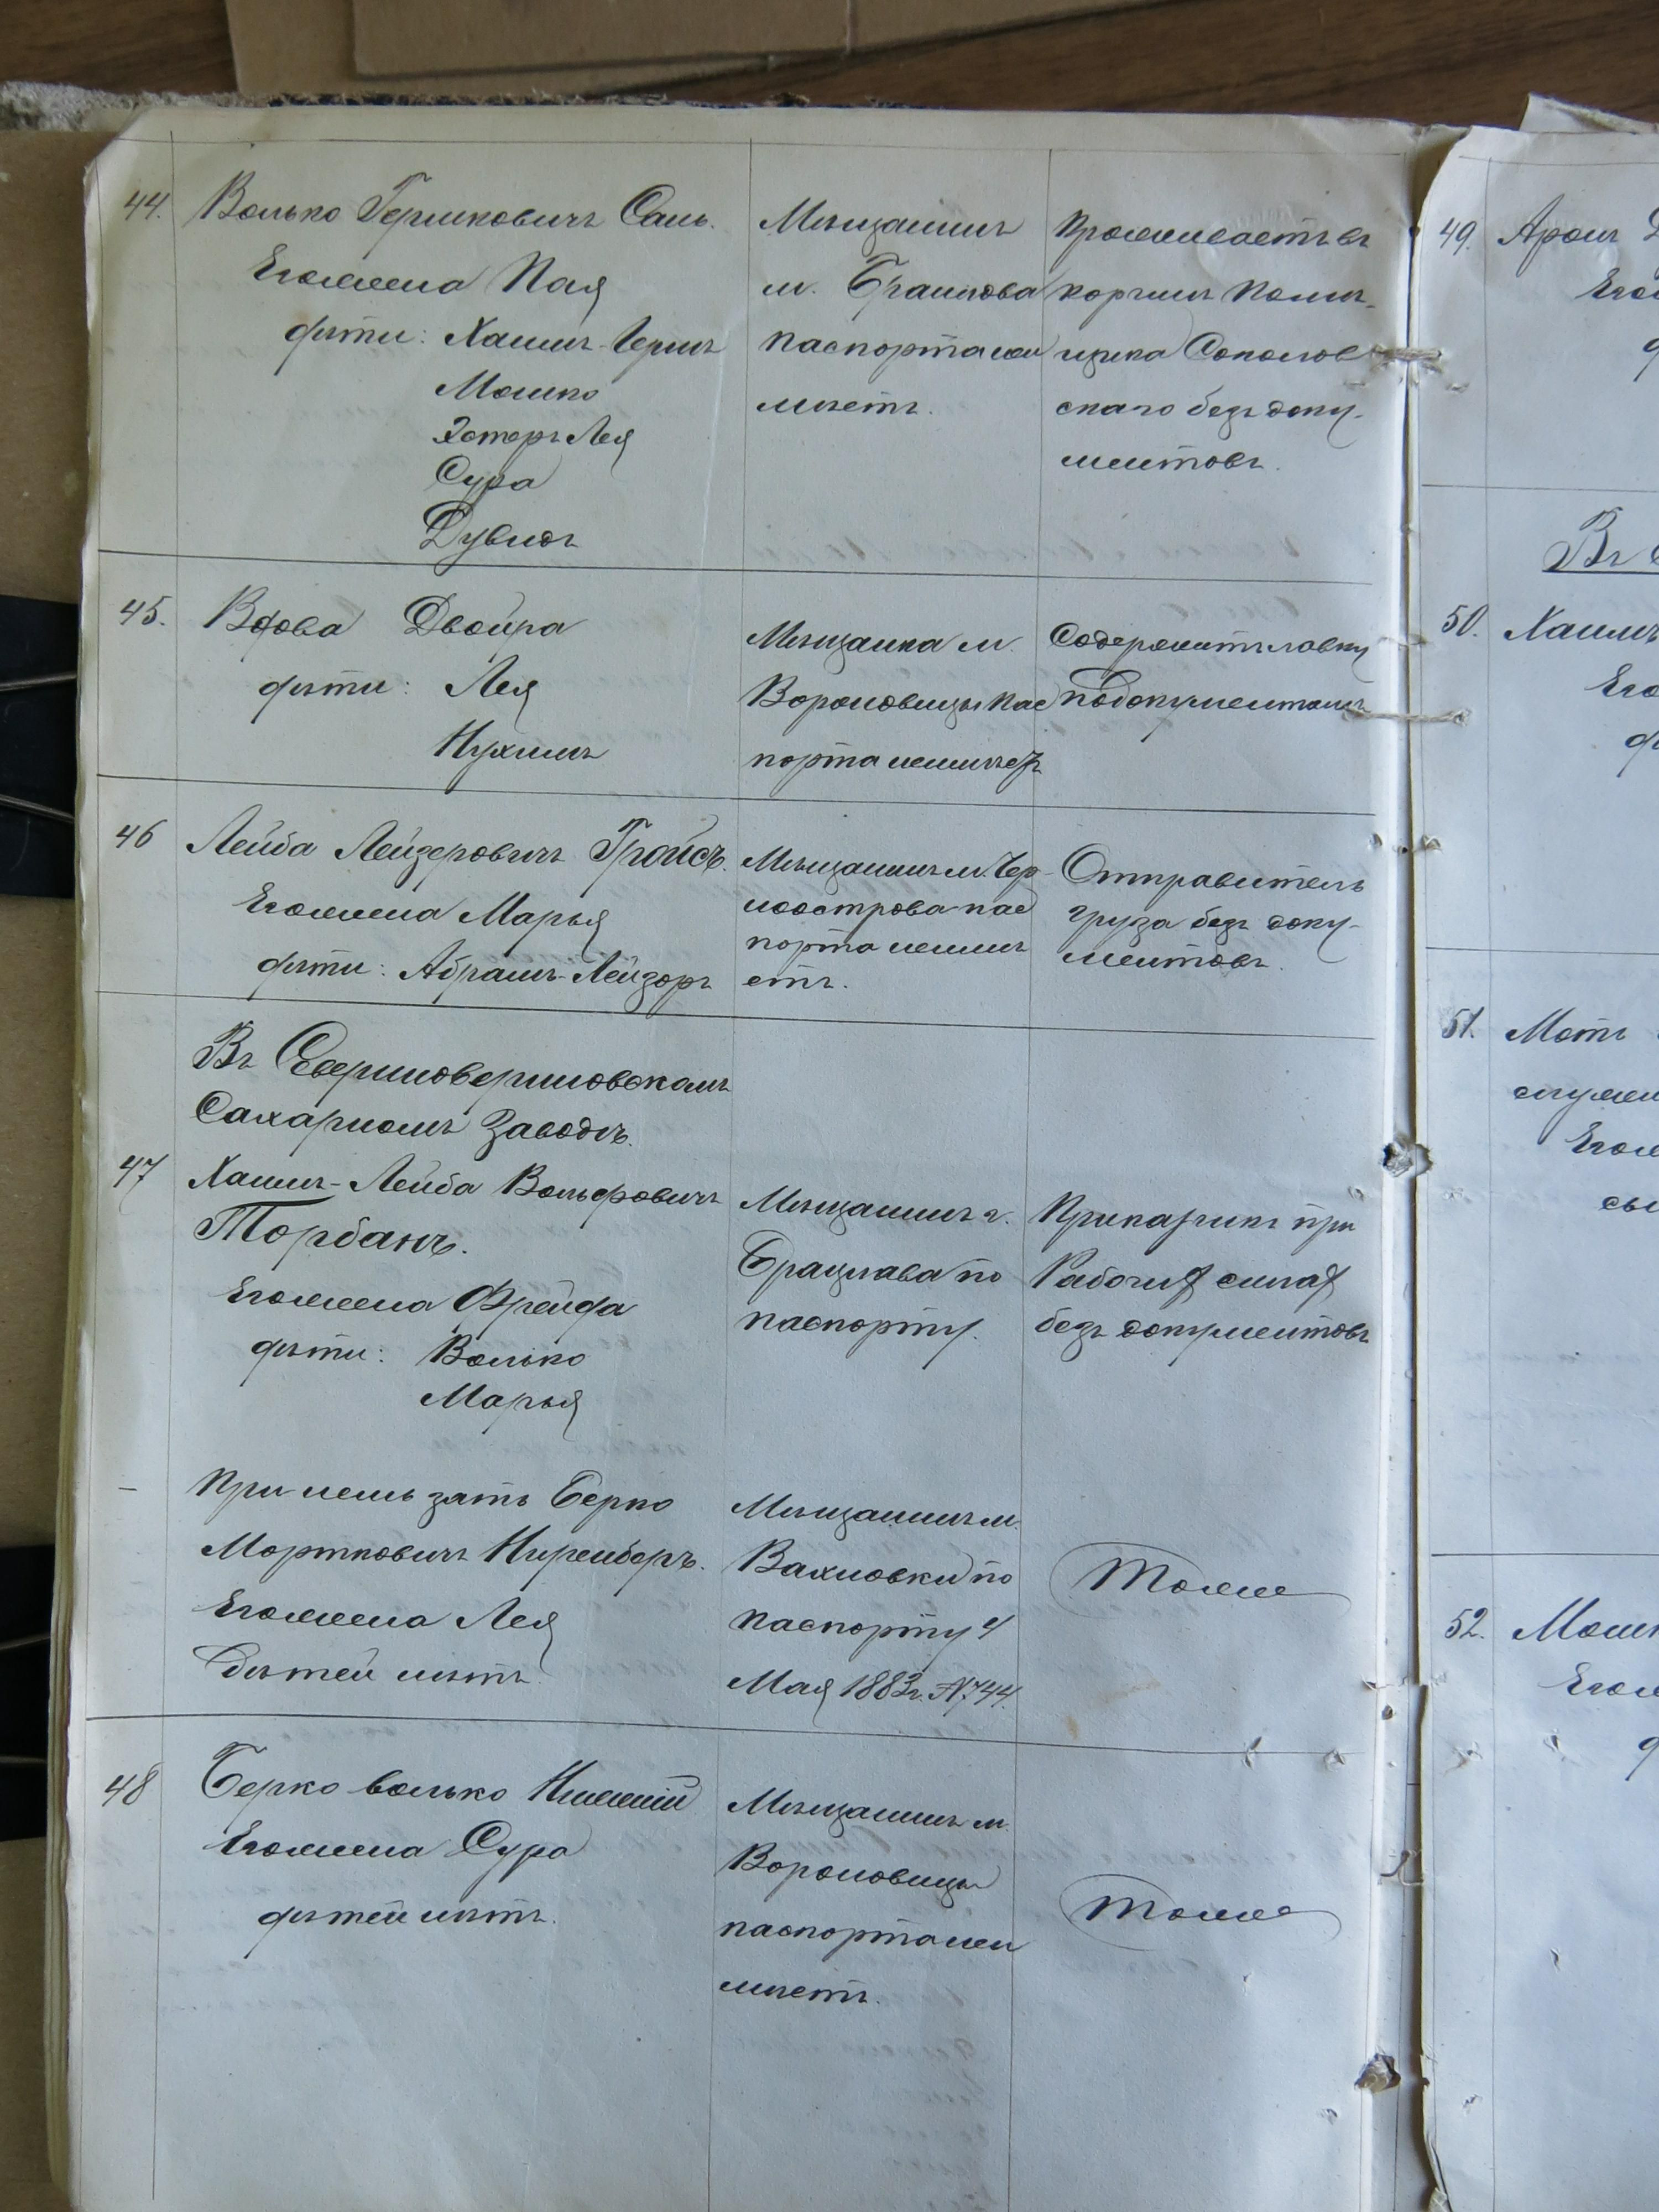 44. Волько Гершковичъ Сань.
Егожена Пая
дѣти: Хаимъ-Гершъ
Мошко
Эстеръ Лея
Сура
Дувидъ
Мѣщанинъ
м. Браилова
паспорта неи
мѣетъ.
Проживаетъ въ
корчмѣ помѣ-
щика Соколов
скаго безъ доку-
ментовъ.
45. Вдова Двойра
дѣти: Лея
Нухимъ
Мѣщанка м.
Вороновицы пас
порта неимѣетъ
Содержитъ лавку
подокументамъ
46 Лейба Лейзеровичъ Тройсъ.
Егожена Марья
дѣти: Абрамъ-Лейзоръ
Мѣщанинъ м. Чер
ноострова пас
порта неимѣ
етъ.
Отправитель
груза безъ доку-
ментовъ.
Въ
Сахарномъ Заводѣ.
47 Хаимъ-Лейба Вольфовичъ
Торбанъ.
Егожена Фрейда
дѣти: Волько
Марья
Мѣщанинъ г.
Брацлава по
паспорту.
Приказчикъ при
Рабочихъ силахъ
безъ документовъ
– При немъ зять Берко
Мортковичъ Ниренберъ.
Егожена Лея
Дѣтей нѣтъ.
Мѣщанинъ м.
Вахновки по
паспорту 4
Мая 1883г. №744.
Тоже
48 Берко Волько
Егожена Сура
дѣтей нѣтъ.
Мѣщанинъ м.
Вороновицы
паспорта неи
мѣетъ.
Тоже
49. Аронъ
Въ
50. Хаимъ
51. Моть
52.